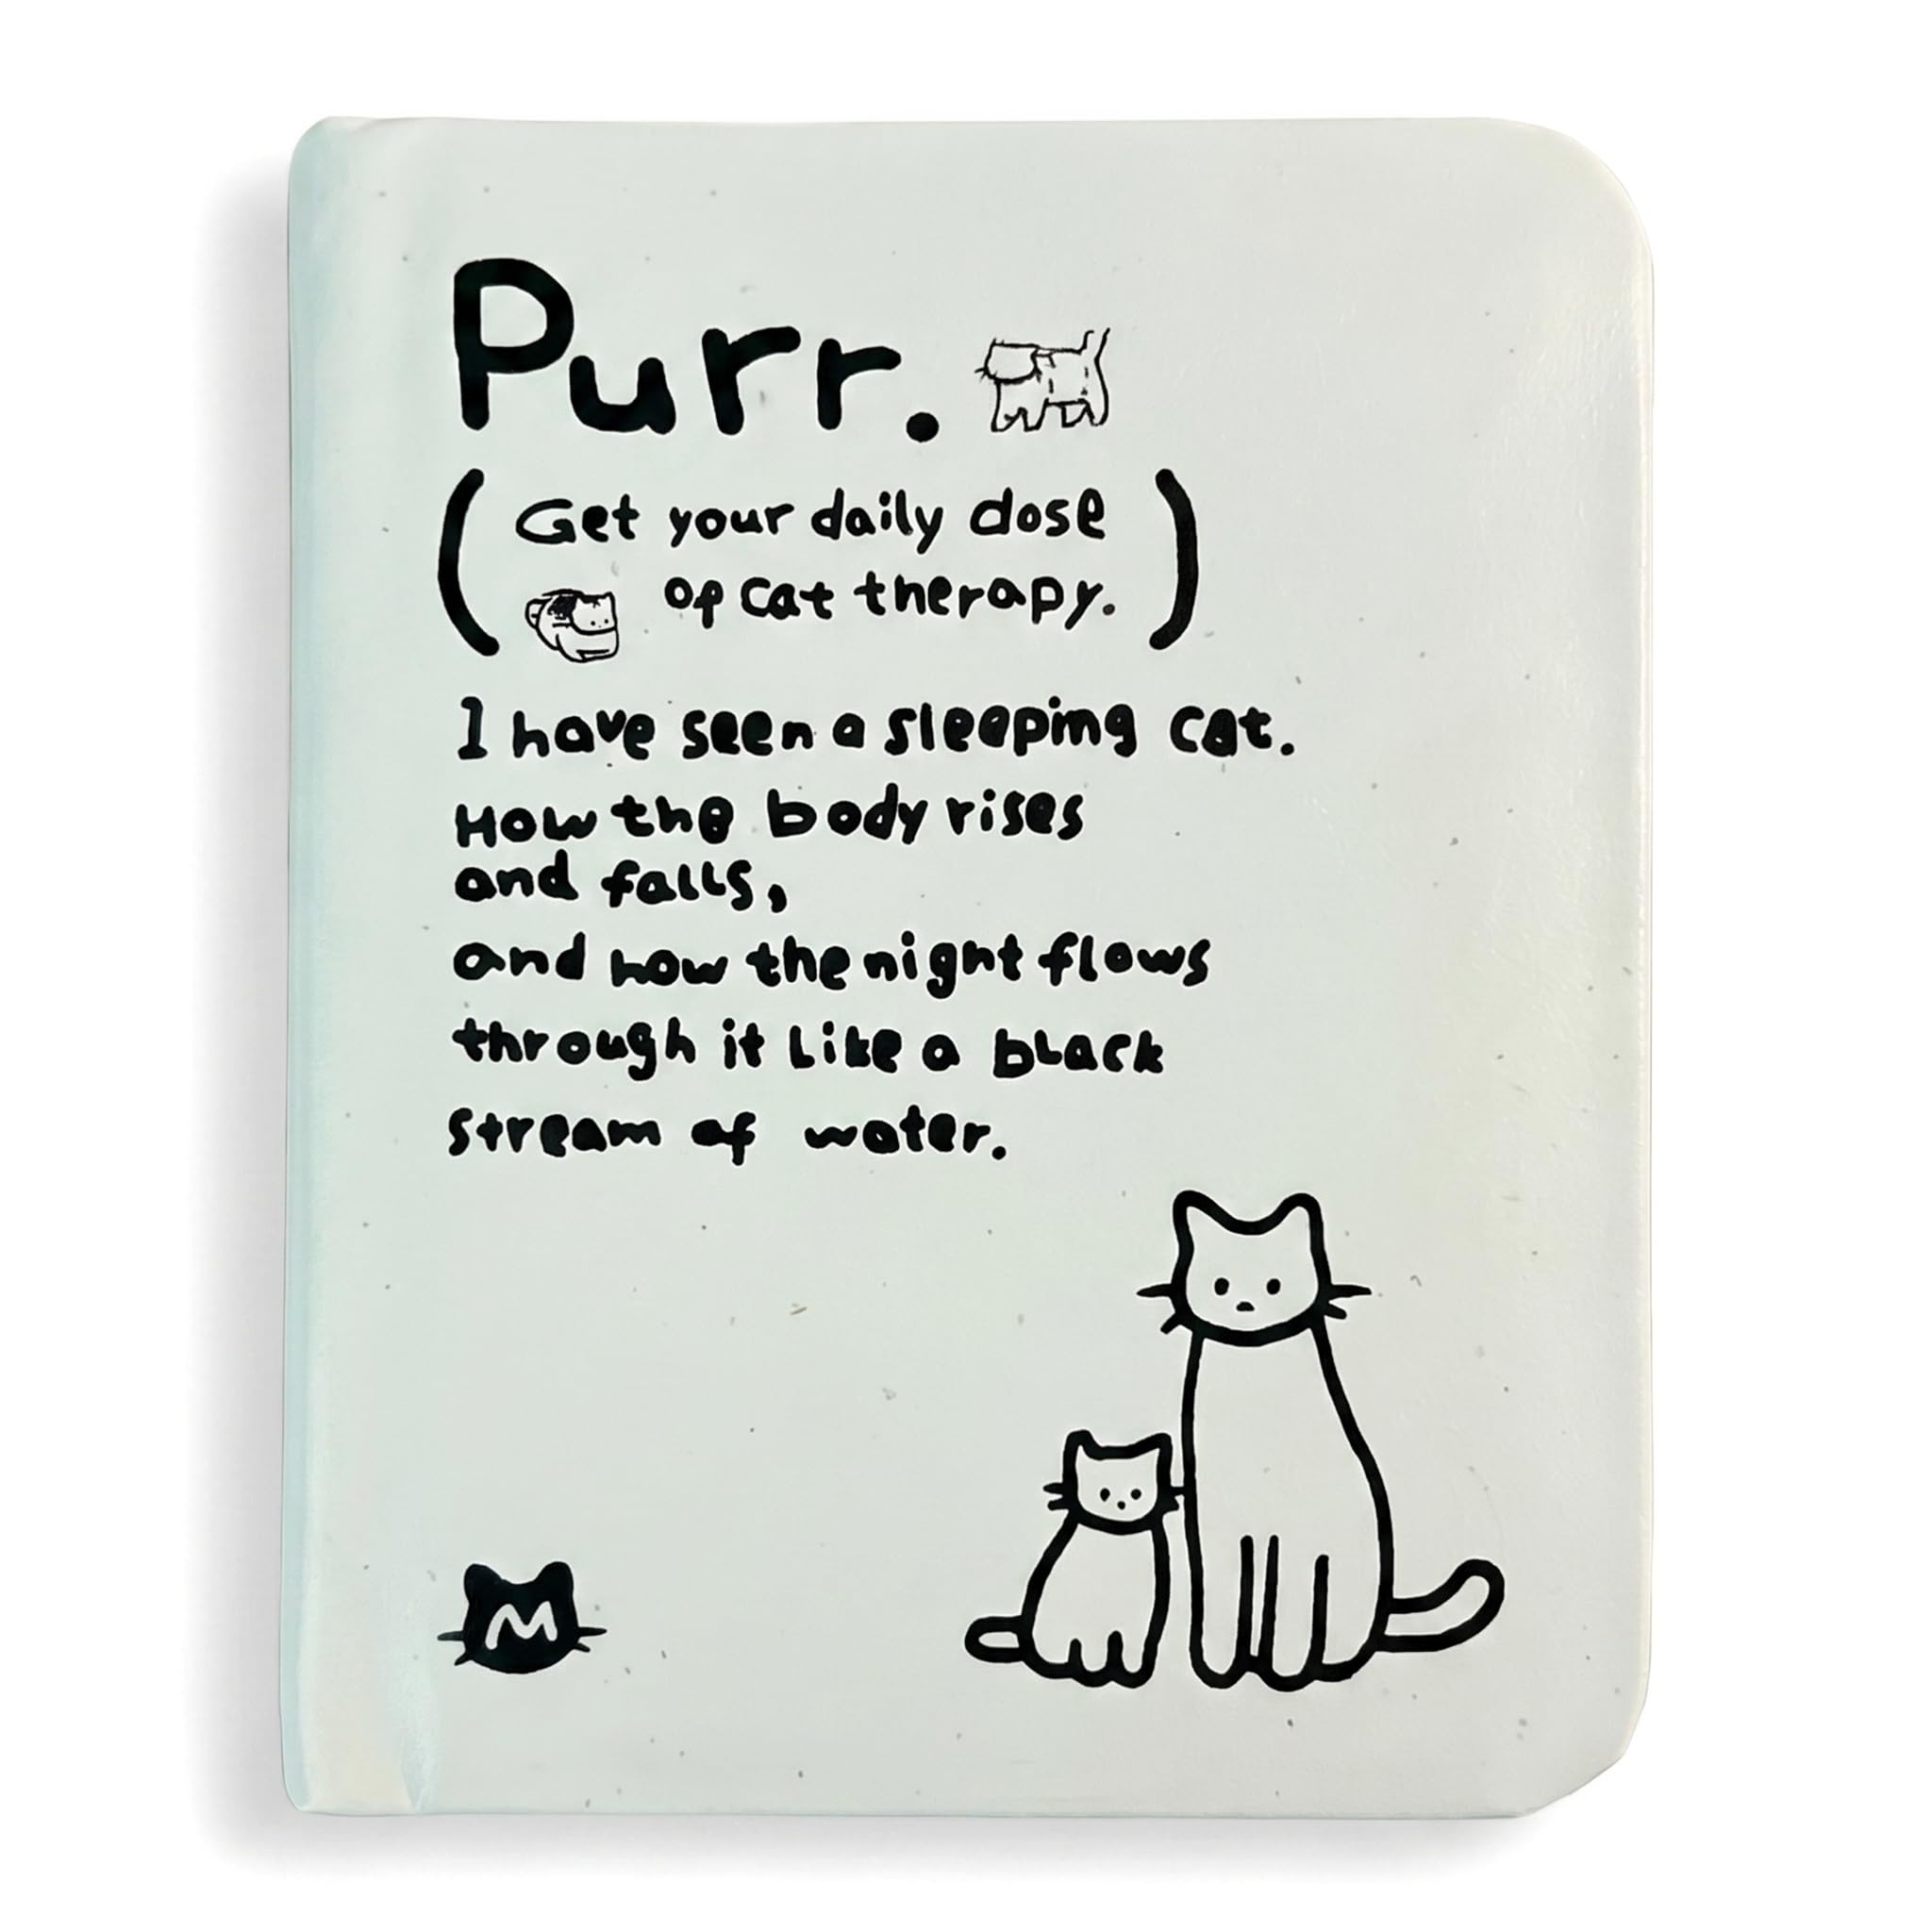 Purr.
(Get your daily dose
of cat therapy.)
I have seen a sleeping cat.
How the body rises
and falls,
and how the night flows
through it like a black
stream of water.
M